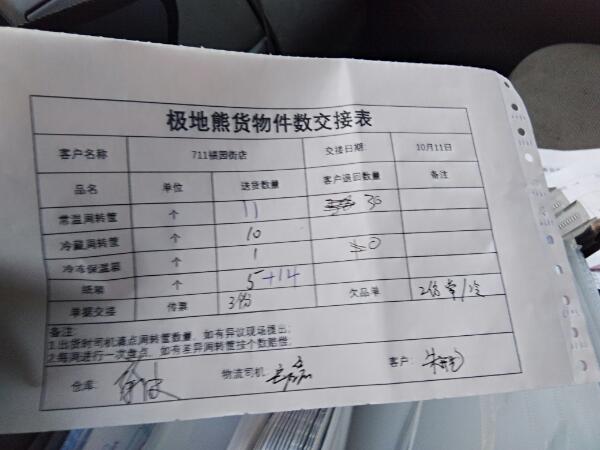 极地熊货物件数交接表
客户名称 711 园街店 交接日期: 10月11日
品名 单位 送货数量 客户退回数量 备注
常温周转筐 个 11 30
冷藏周转筐 个 10
冷冻保温票 个 1 0
纸箱 个 5+14
单据交接 传票 3份 欠品单 2份
备注:
1.出货时司机清点周转筐数量,如有异议现场提出;
2.每周进行一次盘点,如有差异周转筐按个数赔偿;
仓库: 物流司机: 客户: